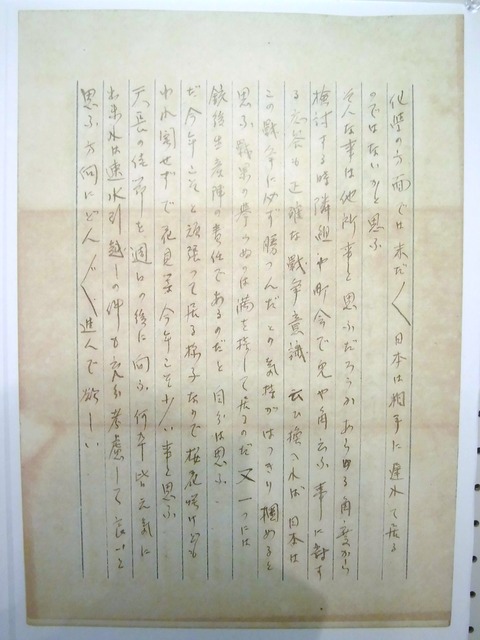 化学の方面では未だ/\日本は相手に遅れて居る
のではないかと思ふ
そんな事は他所事と思ふだろうがあらゆる角度から
検討する時隣組や町会で兎や角云ふ事に対す
る応答も正確な戦争意識 云ひ換へれば日本は
この戦争に必ず勝つんだとの気持がはっきり掴めると
思ふ戦果の挙らぬのは満を持して居るのだ又一つには
銃後生産陣の責任であるのだと自分は思ふ
だ今年こそと頑張って居る様子なので桜花咲けども
われ関せずで花見等今年こそ少い事と思ふ
天長の佳節を週日の後に向ふ何卒皆元気に
出来れば速水引越しの件も充分考慮して良いと
思ふ方向にどん/\進んで欲しい